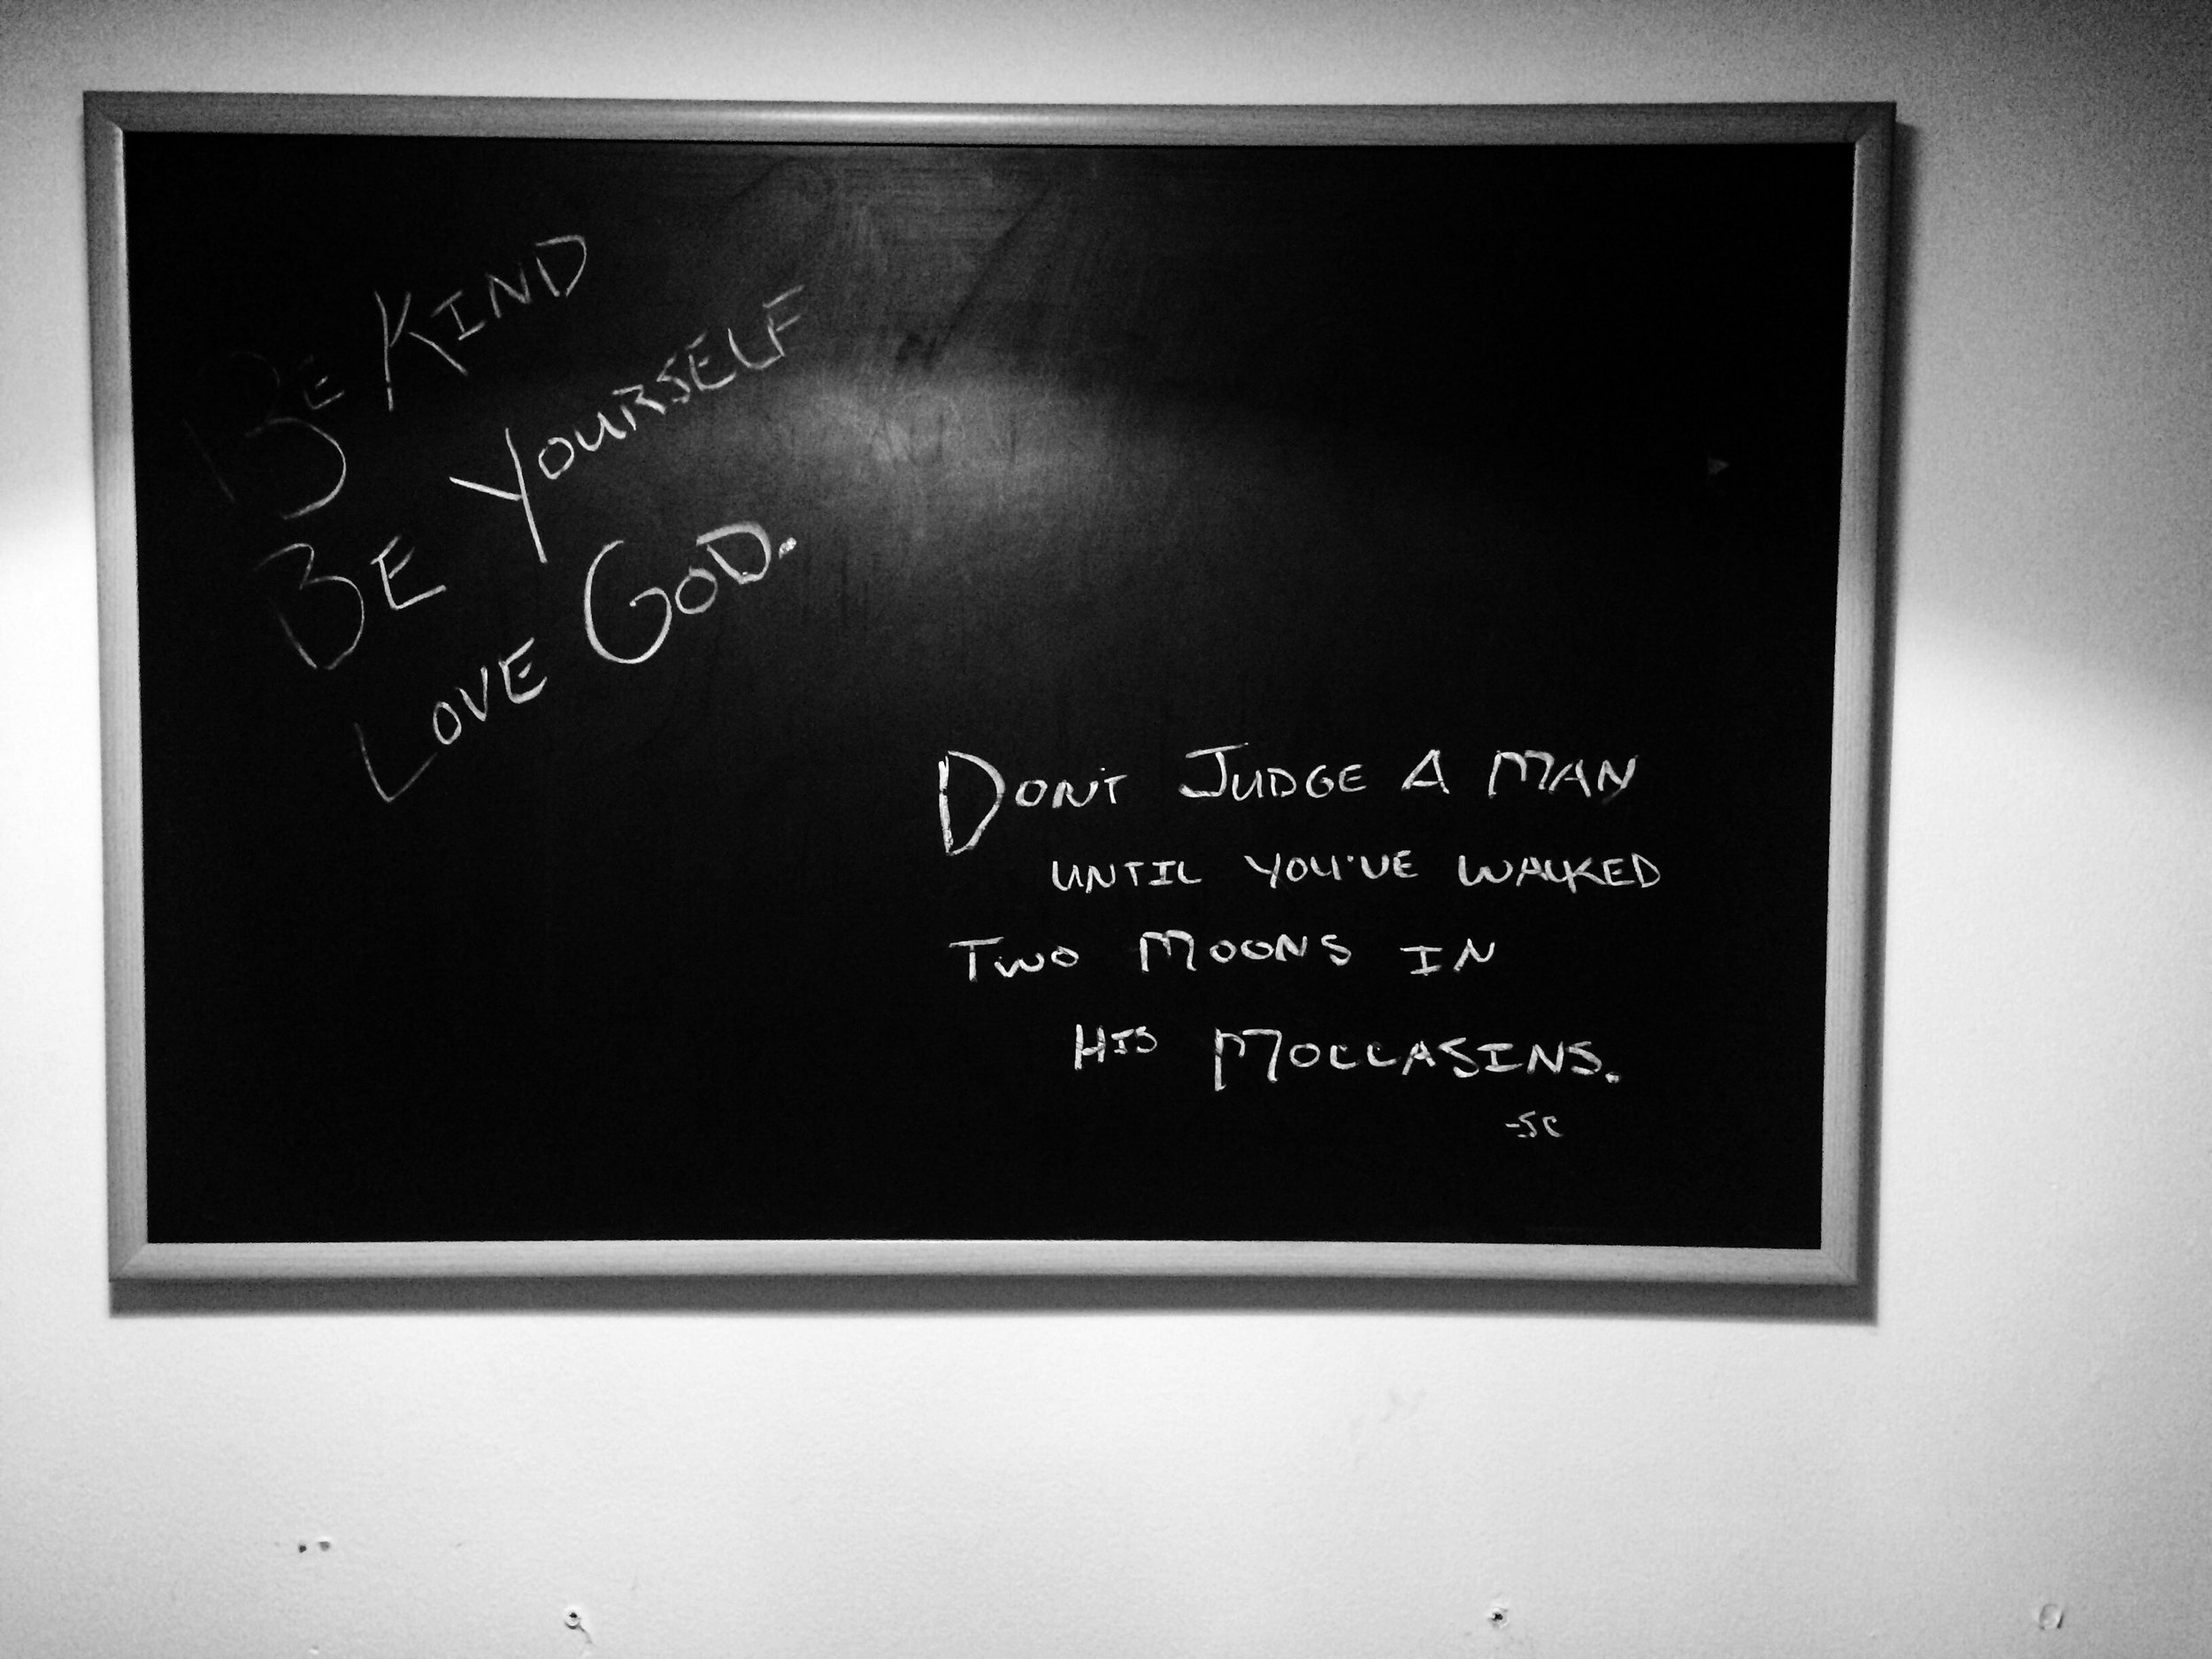 BE KIND
BE YOURSELF
LOVE GOD.
DON'T JUDGE A MAN
UNTIL YOU'VE WALKED
TWO MOONS IN
HIS MOCCASINS.
-SC